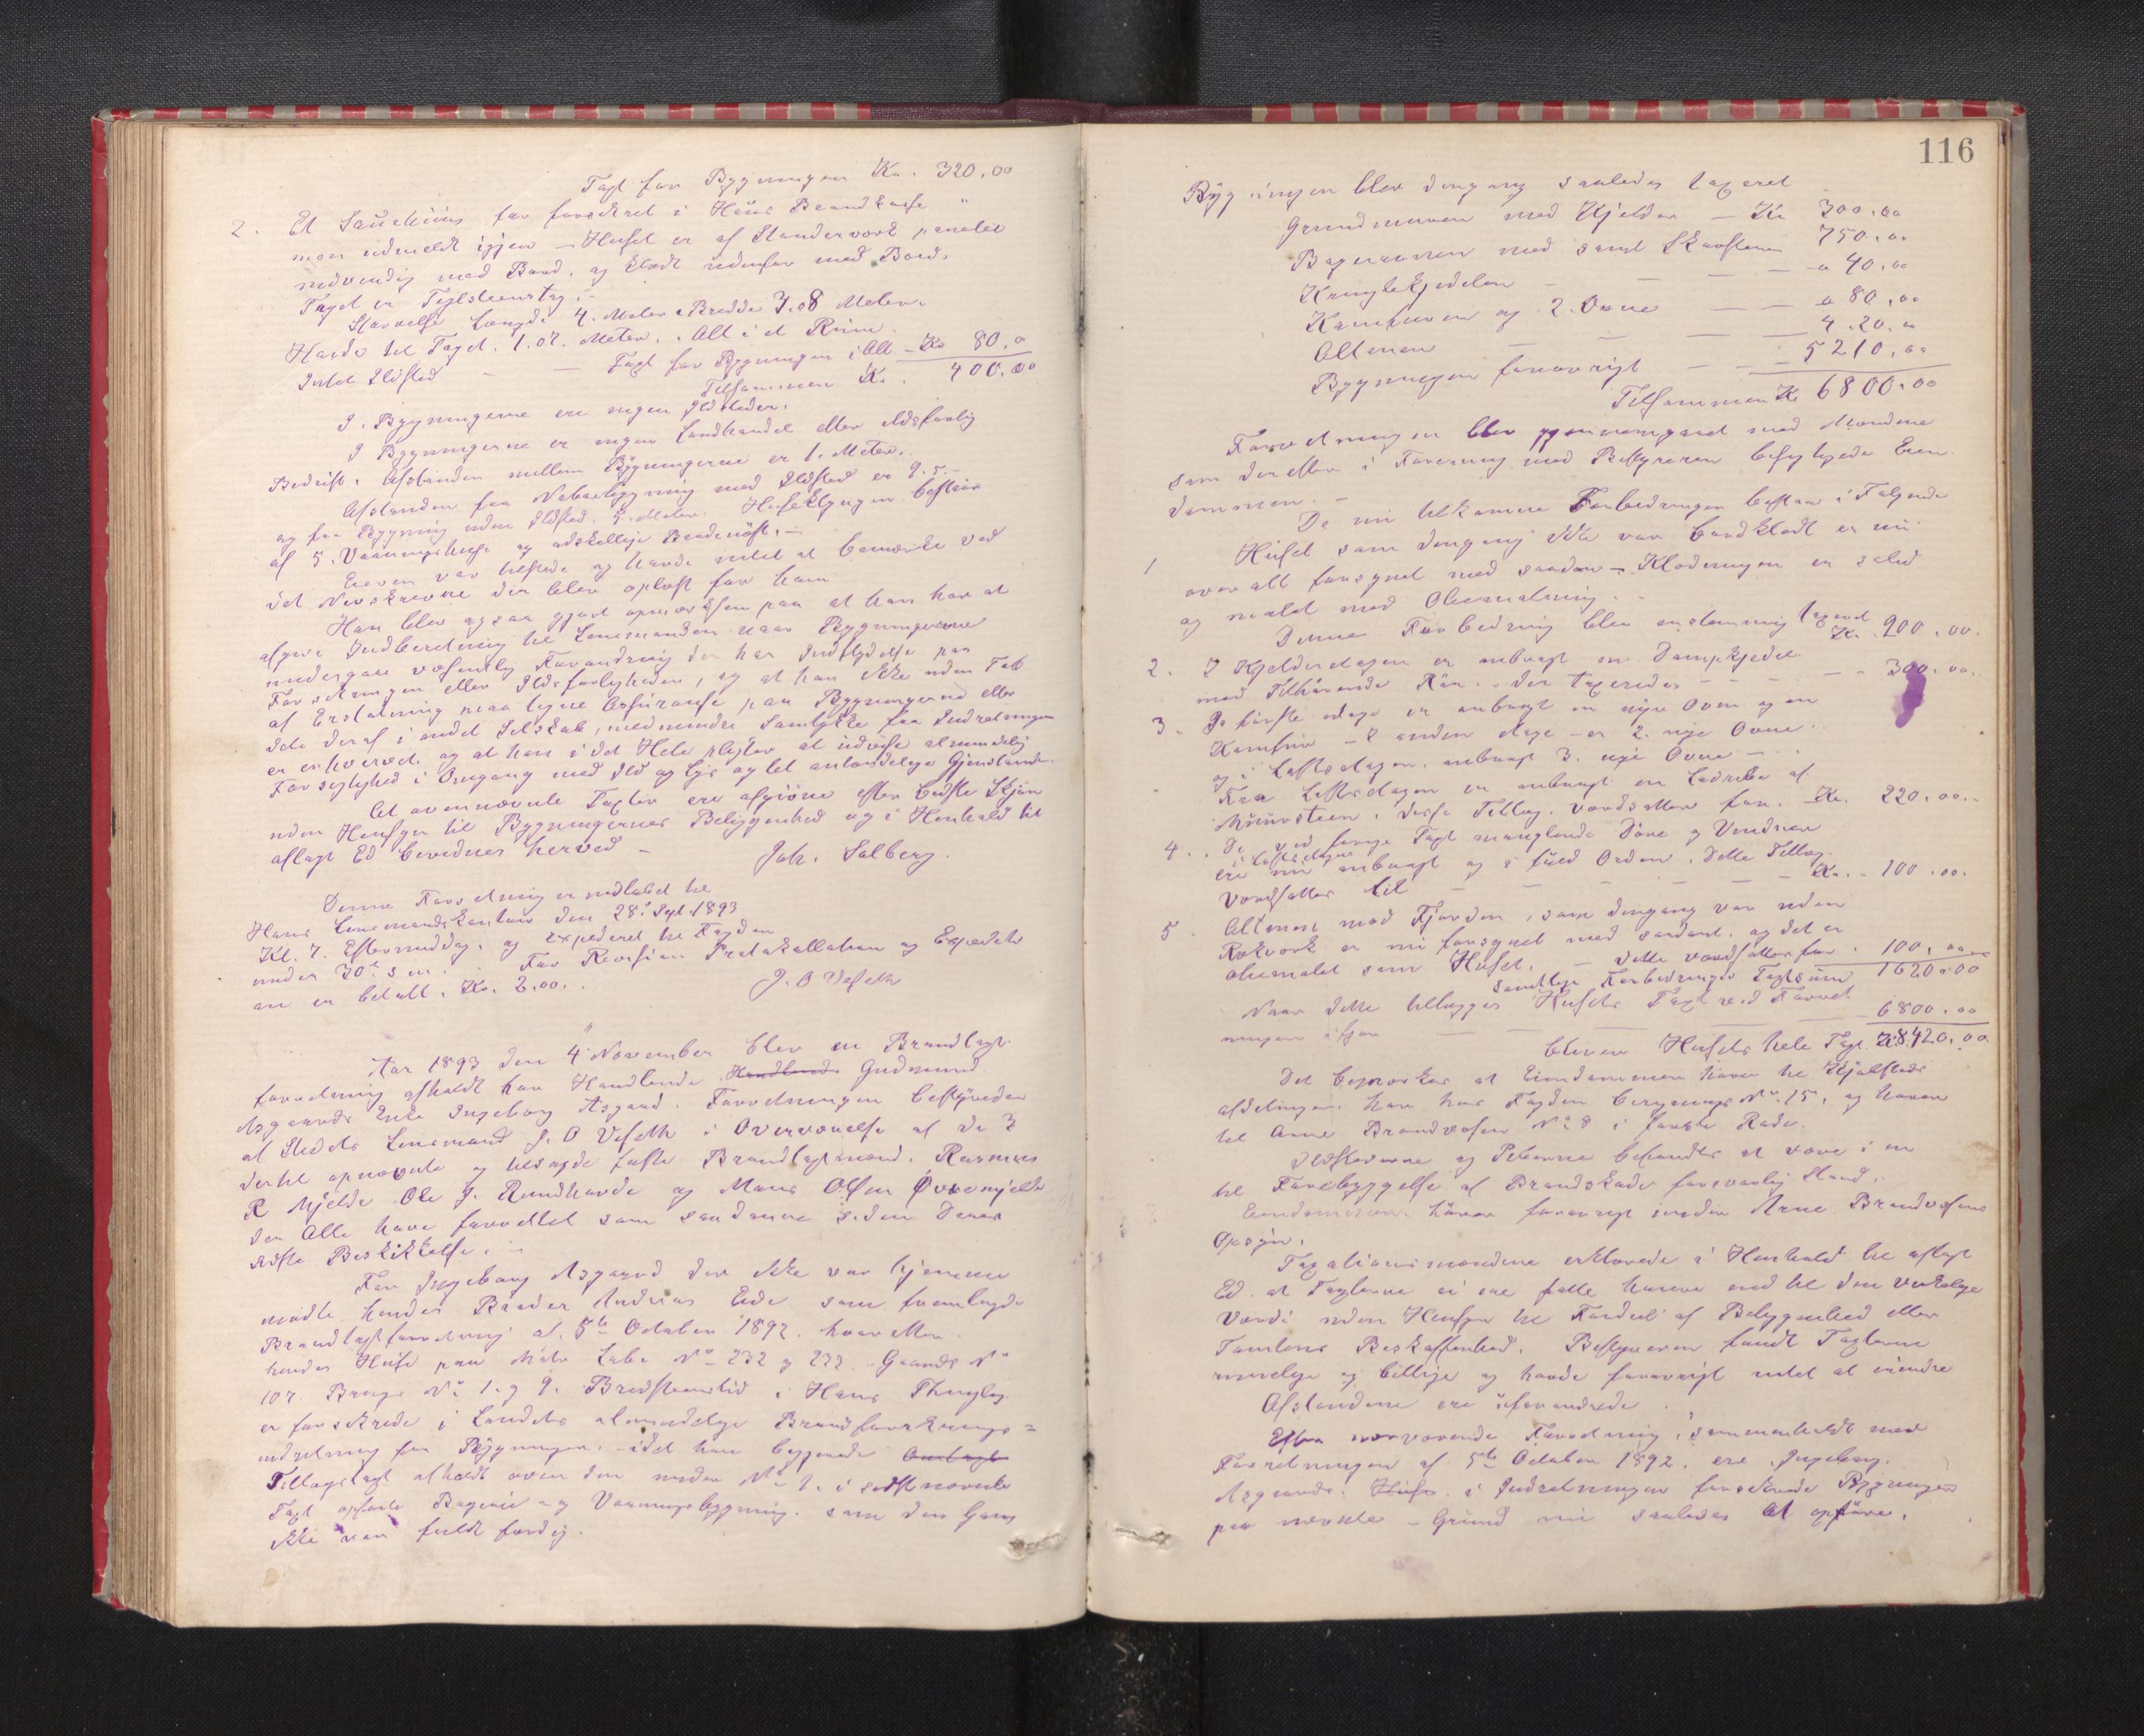 Taxt for Bygningen Kr. 320.00
2. Et Sauehuus før forsikret i Haus Brandkasse
men udmeldt igjen – Huset er af Standerværk panelet
indvendig med Bord, og klædt udenfor med Bord.
Taget er Teglsteenstag. –
Størrelse Længde 4. Meter Bredde 3.08 Meter.
Høide til Taget. 1.07. Meter. Alt i et Rum.
Intet Ildsted – – Taxt for Bygningen i Alt – Kr 80.0
Tilsammen Kr. 400.00
I. Bygningerne ere ingen Ildsteder.
I Bygningerne er ingen Landhandel eller ildsfarlig
Bedrift. Afstanden mellem Bygningerne er 1. Meter.
Afstanden fra Nabobygning med Ildsted er 9.5. –
og fra Bygning uden Ildsted. 5. Meter. Huseklyngen bestaar
af 5. Vaaningshuse og adskellige Baadenøst. –
Eieren var tilstede og havde intet at bemærke ved
det Nedskrevne der blev oplæst for ham
Han blev ogsaa gjort opmærksom paa at han har at
afgive Indberetning til Lensmanden naar Bygningerne
undergaar væsentlig Forandring der har Indflydelse paa
Forsikringen eller Ildsfarligheden, og at han ikke uden Tab
af Erstatning maa tegne Assurance paa Bygningerne eller
dele deraf i andet Selskab, medmindre Samtykke fra Indretningen
er erhvervet, og at han i det Hele pligter at udvise almindelig
Forsigtighed i Omgang med Ild og Lys og let antændelige Gjenstande.
At ovennævnte Taxter ere afgivne efter bedste Skjøn
uden Hensyn til Bygningernes Beliggenhed og i Henhold til
aflagt Ed bevidnes herved –
Joh. Salberg.
Denne Forretning er indløbet til
Haus Lensmandskontor den 28de Sept. 1893
Kl. 7. Eftermiddag. og expederet til Fogden
under 30te s m. For Revision Protokollation og Expedition
er betalt. Kr. 2.00. J. O Veseth
Aar 1893 den 4 November blev en Brandtaxt
forretning afholdt hos Handlende Handlende Gudmund
Asgaards Enke Ingeborg Asgaard. Forretningen bestyredes
af Stedets Lensmand J. O Veseth i Overværelse af de 3
dertil opnævnte og tilsagde faste Brandtaxtmænd. Rasmus
R Mjelde Ole J. Rundhovde og Mons Olsen Øvremjelde
der Alle have forrettet som saadanne siden deres
sidste Beskikkelse. –
For Ingeborg Asgaard der ikke var hjemme
mødte hendes Broder Andreas Eide som fremlagde
Brandtaxtforretning af 5te October 1892. hvorefter
hendes Huse paa Matr Løbe No 232 og 233. Gaards No
107. Brugs No 1. og 9. Bredsteenslid i Haus Thinglag
er forsikrede i Landets almindelige Brandforsikrings=
indretning for Bygninger. idet hun begjærede Omtaxt
Tillægstaxt afholdt over den under No 1. i sidstnævnte
Taxt opførte Bageri- og Vaaningsbygning. som den Gang
ikke var fuldt færdig.
116
Bygningen blev dengang saaledes taxeret
Grundmuren med Kjelder – Kr 300.00
Bagerovnen med samt Skorsteen 750.00
Kringlekjedelen – – – 40.00
Kamfuren og 2. Ovne – – 80.00
Altanen – – – 420.00
Bygningen forøvrigt – – 5210.00
Tilsammen Kr 6800.00
Forretningen blev gjennemgaaet med Mændene
som derefter i Forening med Bestyreren besigtigede Eien
dommen. –
De nu tilkomne Forbedringer bestaar i Følgende
1 Huset som dengang ikke var bordklædt er nu
overalt forsynet med saadan – Klædningen er solid
og malet med Oliemaling.
Denne Forbedring blev enstemmig taxeret Kr. 900.00.
2. I Kjelderetagen er anbragt en Dampkjedel
med Tilhørende Rør. der taxeredes – – – 300.00.
3. I første etage er anbragt en nye Ovn og en
Kamfur – I anden etage – er 2. nye Ovne
og i Loftsetagen, anbragt 3. nye Ovne –
Fra Loftsetagen er anbragt en af
Muursteen. disse Tillæg. værdsattes for. Kr. 220.00.
4. De ved forrige Taxt manglende Døre og Vinduer
i Loftsetagen
ere nu anbragt og i fuld Orden. Dette Tillæg
værdsattes til – – – – Kr. 100.00.
5. Altanen mod Fjorden, som dengang var uden
Rækværk er nu forsynet med saadant. og det er
oliemalet som Huset. – Dette værdsattes for 100.00
Samtlige Forbedringers Taxtsum 1620.00
Naar dette tillægges Husets Taxt ved Forret
ningen ifjor – – – 6800.00
bliver Husets hele Taxt. Kr. 8420.00
Det bemærkes at Eiendommen hører til
afdelingen. har hos Fogden No 15. og hører
til Arne Brandvæsen No 8 i første Rode.
Ildstederne og Piberne befandtes at være i en
til Forebyggelse af Brandskade forsvarlig Stand.
Eiendommen hører forøvrigt under Arne Brandvæsens
Opsyn.
Taxationsmændene erklærede i Henhold til aflagt
Ed. at Taxterne ei ere satte høiere end til den virkelige
Værdi uden Hensyn til Fordeel af Beliggenhed eller
Tomtens Beskaffenhed. Bestyreren fandt Taxterne
rimelige og billige og havde forøvrigt intet at erindre
Afstandene ere uforandrede
Efter nærværende Forretning, sammenholdt med
Forretningen af 5te October 1892. ere Ingeborg
Asgaards. Huse i Indretningen forsikrede Bygninger
paa nævnte – Grund nu saaledes at opføre.